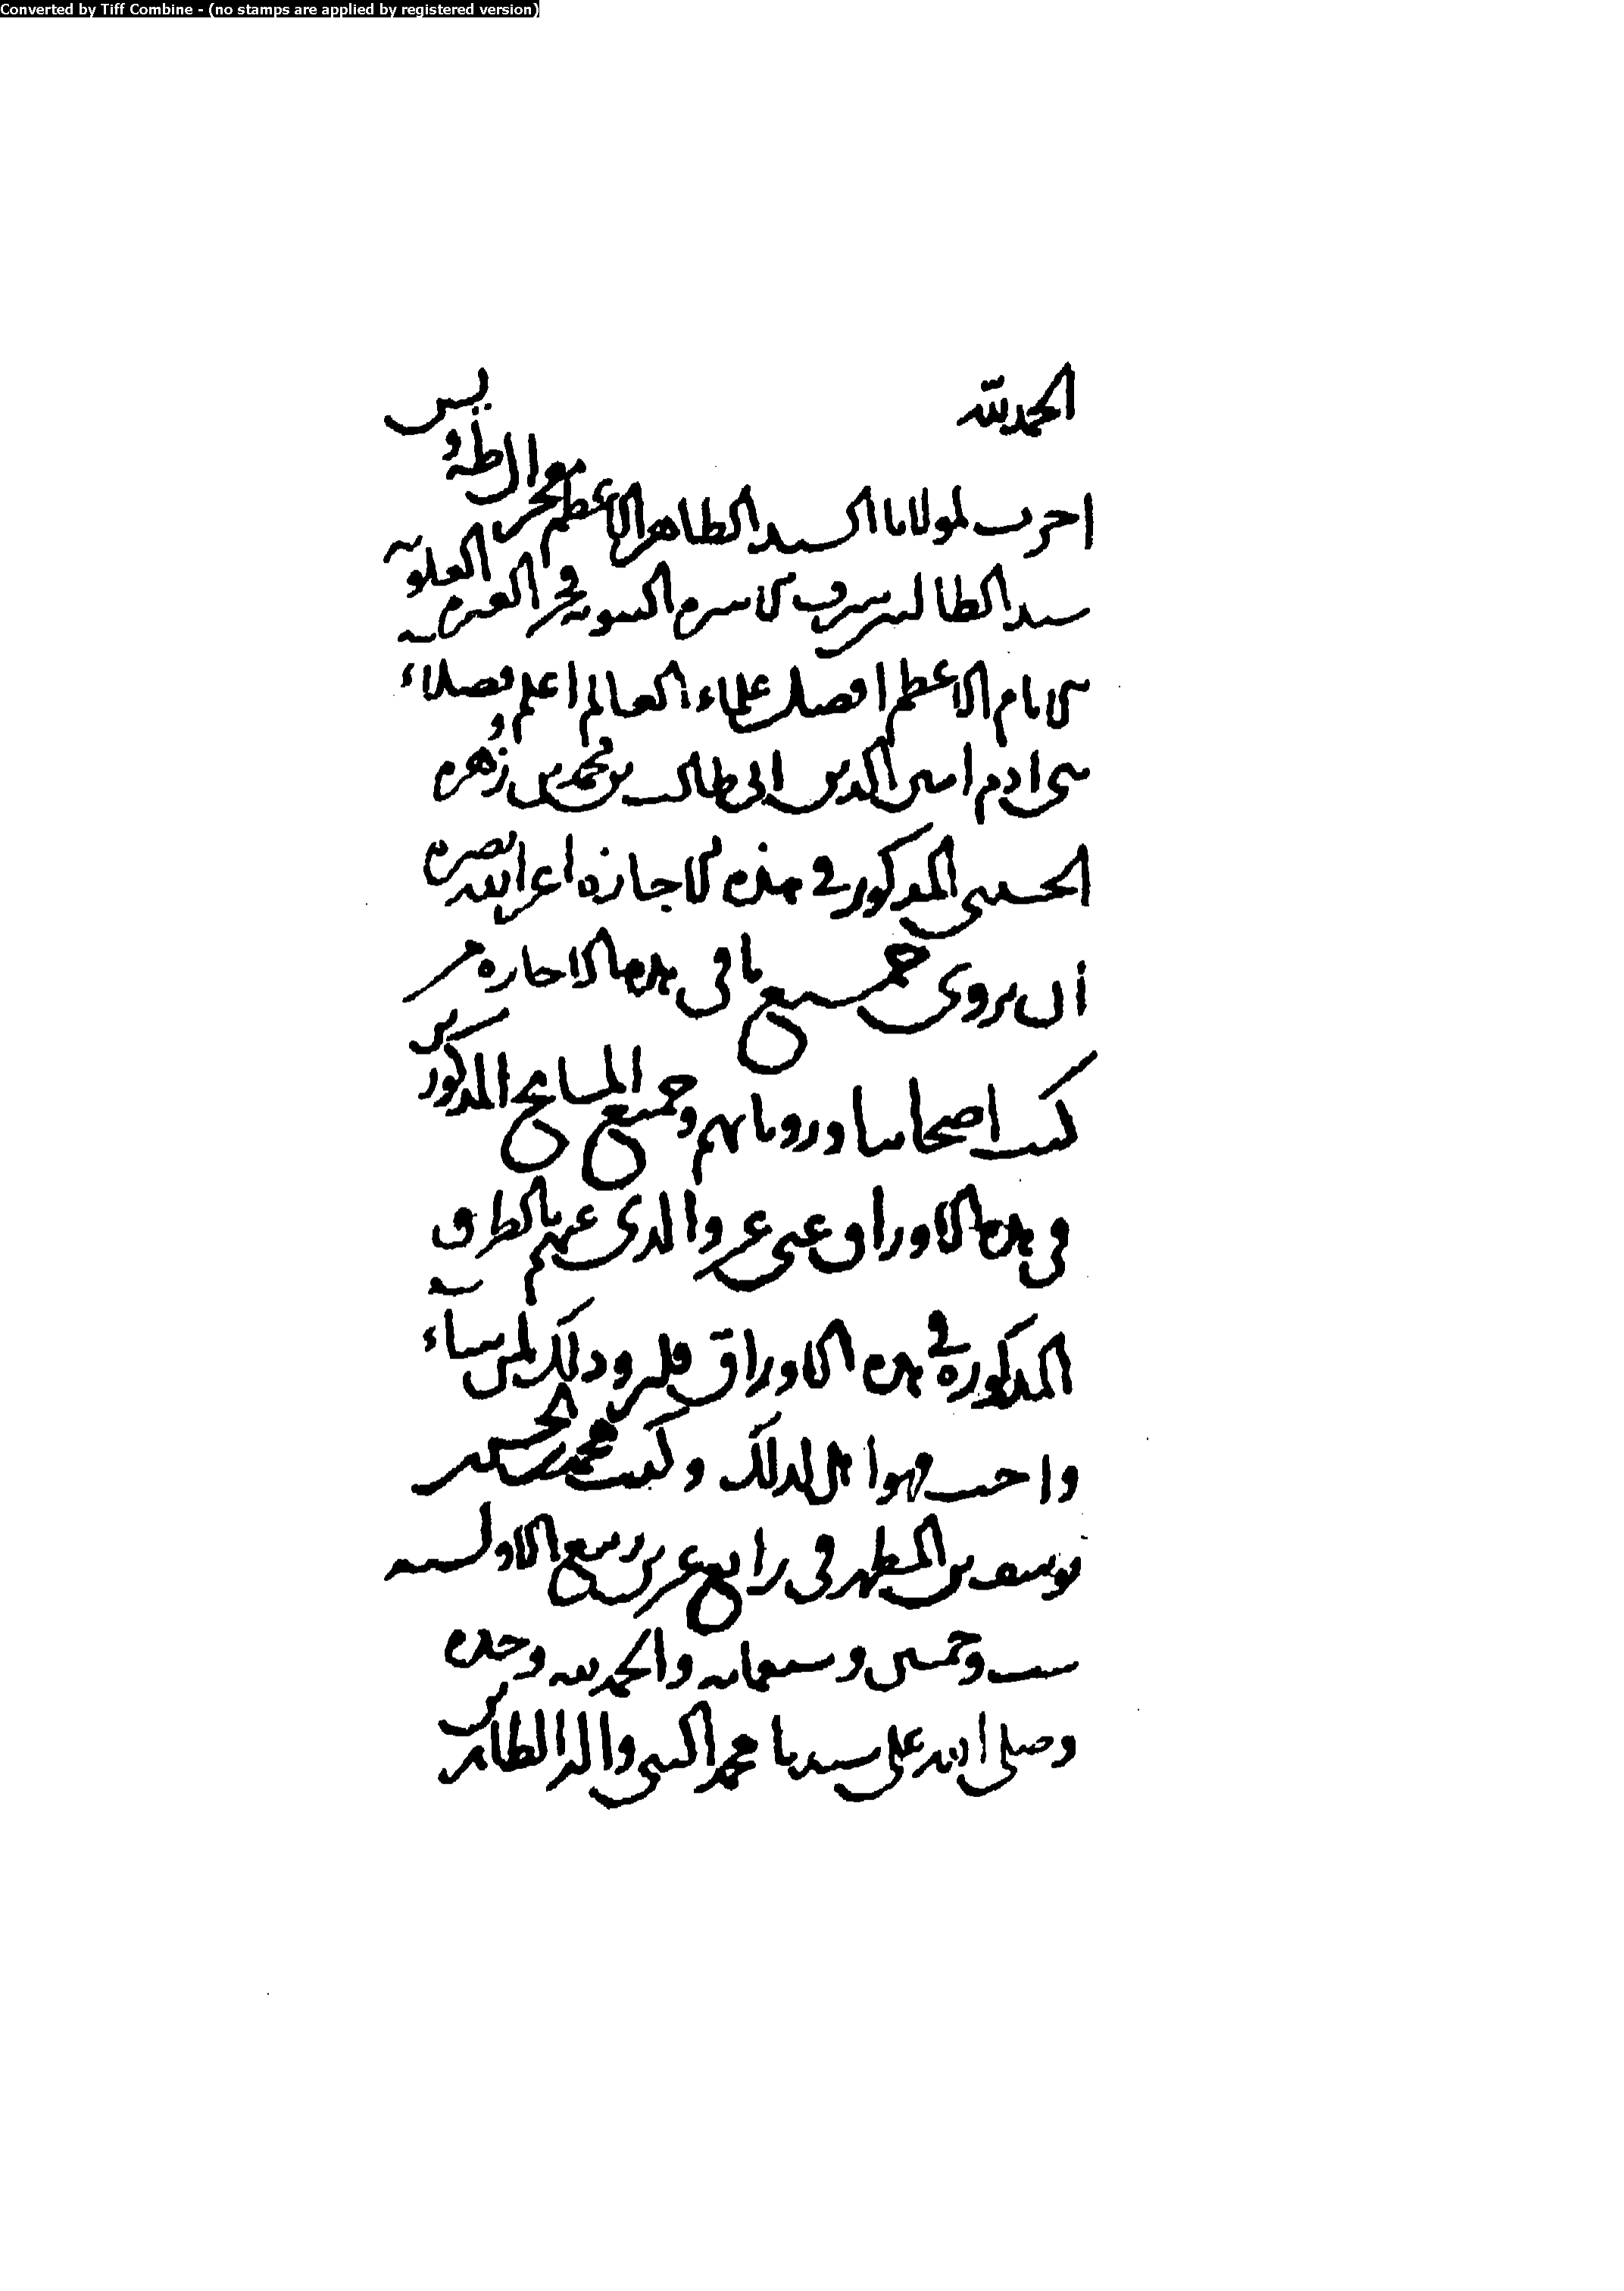 Converted by Tiff Combine - (no stamps are applied by registered version)
الحمد لله
اجزت لمولانا السيد الطاهر الاعظم فخر ال طه و يس
سيد الطالبيين شرف الاسرة النبوية فخر العترة العلوية
الامام الاعظم افضل علماء العالم اعلم فضلاء
بنى ادم امين الدين ابى طالب بن محمد بن زهره
الحسينى المذكور فى هذه الاجازه اعز الله نصره
ان يروى جميع ما فى هذه الاجازه من
كتب اصحابنا ورواياتهم وجميع المشايخ المذكورين
فى هذه الاوراق عنى عن والدى عنهم بالطرق
المذكورة فى هذه الاوراق فليرو ذلك لمن شاء
واحب فهو اهل لذلك وكتب محمد بن الحسن بن
يوسف بن المطهر فى رابع عشرين ربيع الاول سنة
ست وخمسين وسبعمائه والحمد لله وحده
وصلى الله على سيدنا محمد النبى واله الطاهرين